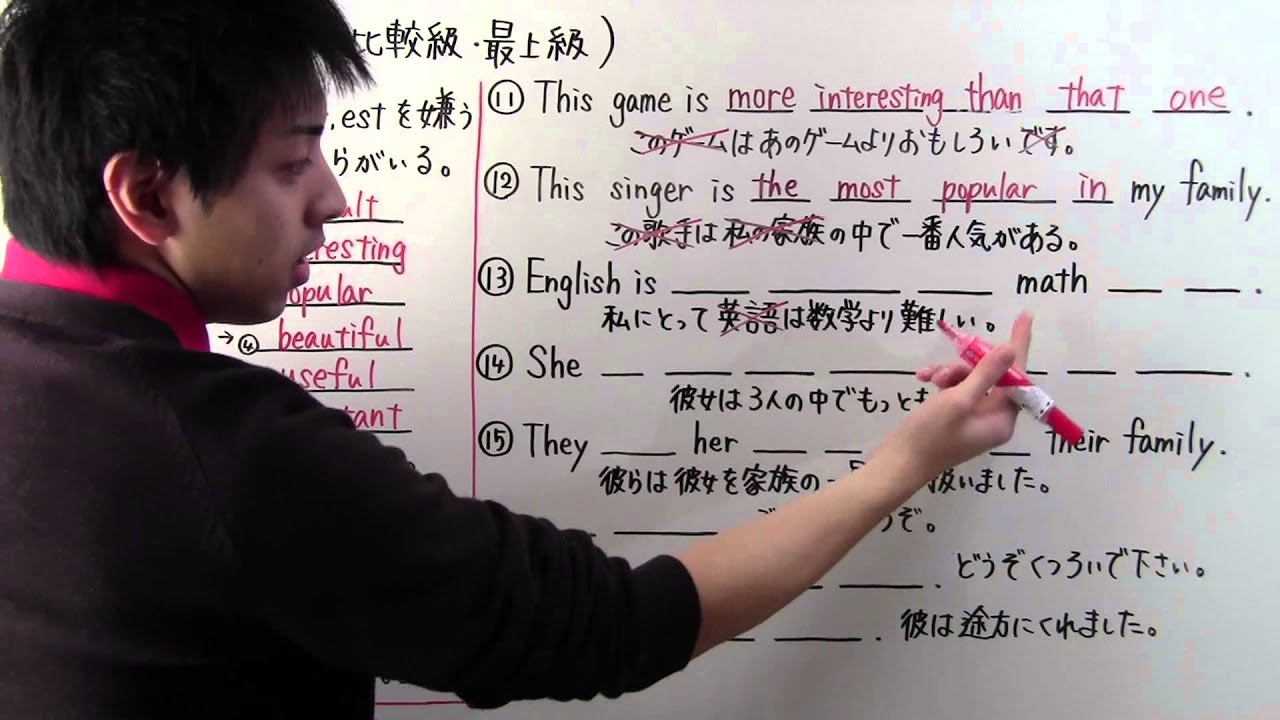 比較級・最上級)
estを嫌う
らがいる。
ult
resting
opular
→④ beautiful
useful
tant
⑪ This game is more interesting than that one.
このゲームはあのゲームよりおもしろいです。
⑫ This singer is the most popular in my family.
この歌手は私の家族の中で一番人気がある。
⑬ English is ___ ___ ___ math ___ ___.
私にとって英語は数学より難しい。
⑭ She ___ ___ ___ ___ ___ ___ ___.
彼女は3人の中でもっとも
⑮ They ___ her ___ ___ ___ their family.
彼らは彼女を家族の一 扱いました。
ぞ。
___. どうぞくつろいで下さい。
___. 彼は途方にくれました。